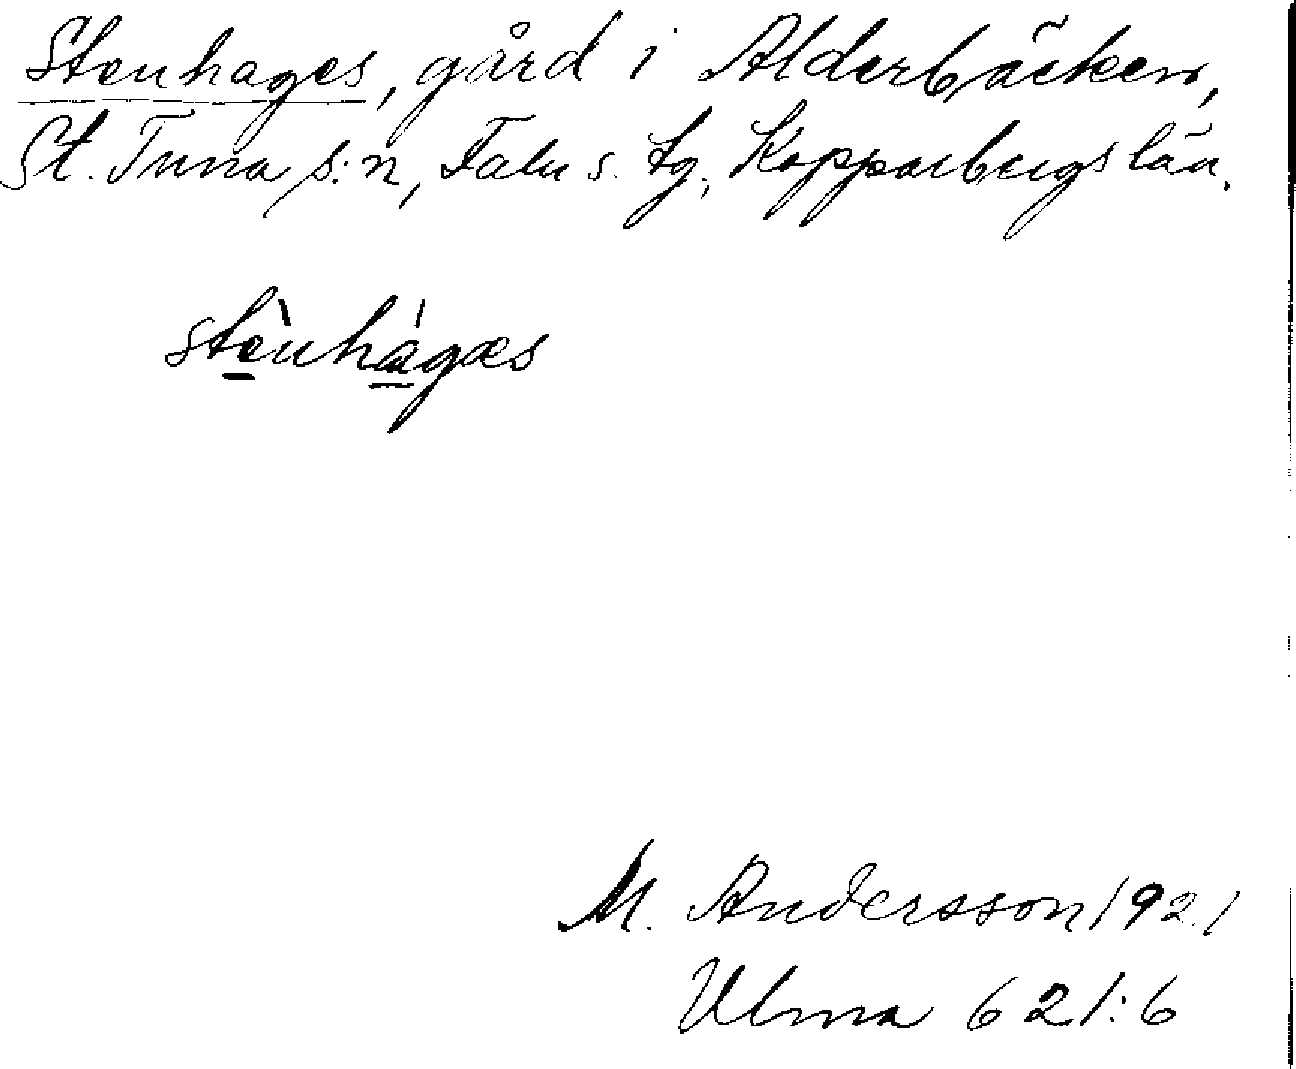 Stenhages, gård i Alderbäcken,
St. Tuna s:n, Falu s. tg., Kopparbergs län.
stènhágæs
M. Andersson 1921
Ulma 621:6